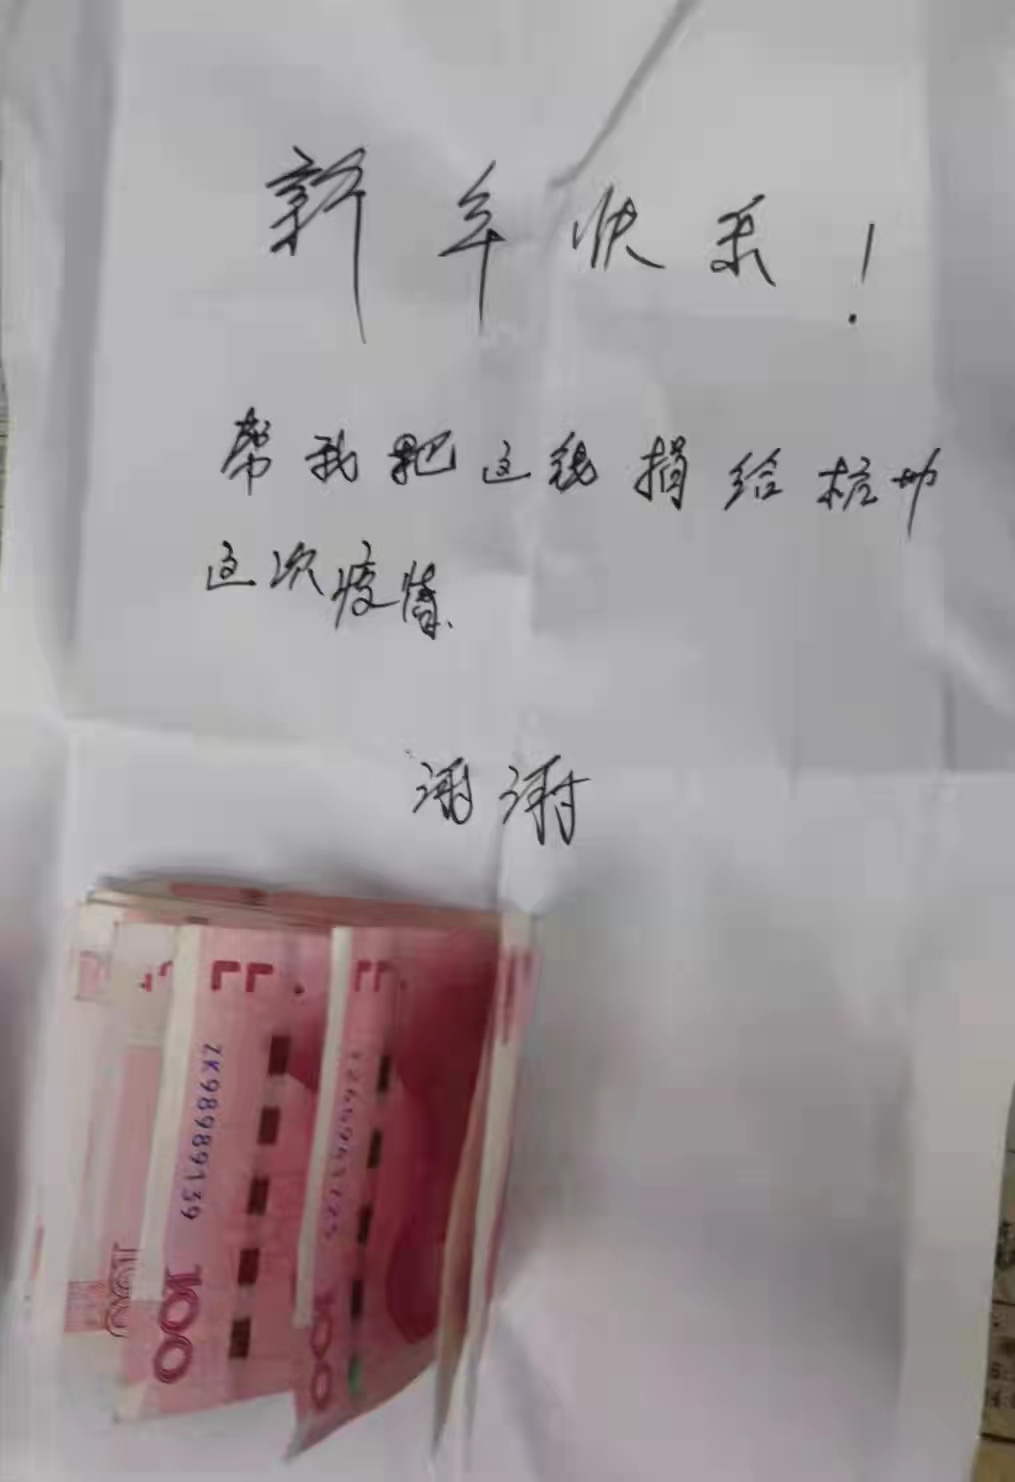 新年快乐!
帮我把这钱捐给杭州
这次疫情、
谢谢
ZK98989139
100
100
100